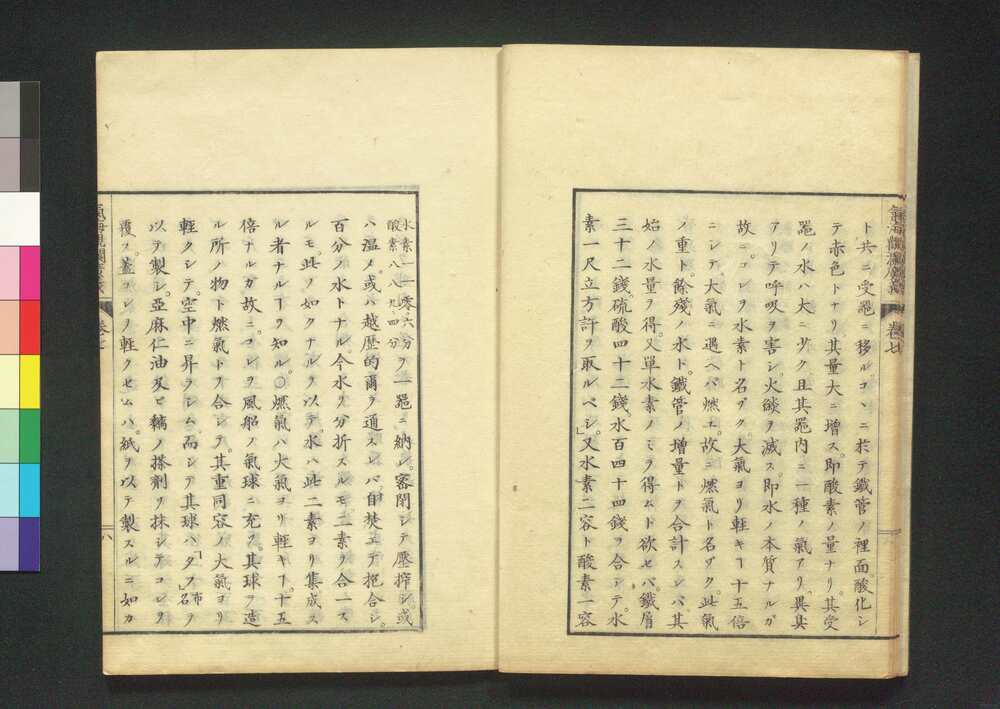 氣海觀瀾廣義 卷七
ト共ニ受噐ニ移ルコヽニ於テ鐵管ノ裡面酸化シ
テ赤色トナリ其量大ニ増ス。即酸素ノ量ナリ。其受
噐ノ水ハ大ニ少ク。且其噐内ニ一種ノ氣アリ。異其
アリテ呼吸ヲ害シ。火燄ヲ滅ス即水ノ本質ナルガ
故ニ。コレヲ水素ト名ヅク。大氣ヨリ輕キヿ十五倍
ニシテ。大氣ニ遇ヘバ燃エ。故ニ燃氣ト名ヅク此氣
ノ重ト。餘殘ノ水ト。鐵管ノ増量トヲ合計スレバ。其
始ノ水量ヲ得。又單水素ノミヲ得ムト欲セバ。鐵屑
三十二錢。硫酸四十二錢。水百四十四錢ヲ合シテ。水
素一尺立方許ヲ取ルベシ」又水素二容ト酸素一容
水素一一零、六分
酸素八八九、四分
ヲ一噐ニ納レ。密閉シテ壓搾シ。或
ハ温メ。或ハ越歴的爾ヲ通スレバ自焚エテ抱合シ。
百分ノ水トナル今水ヲ分折スルモ。二素ヲ合一ス
ルモ。此ノ如クナルヲ以テ。水ハ此二素ヨリ集成ス
ル者ナルヿヲ知ル。○燃氣ハ大氣ヨリ輕キヿ。十五
倍ナルガ故ニ。コレヲ風船ノ氣球ニ充ツ。其球ヲ造
ル所ノ物ト燃氣トヲ合シテ。其重同容ノ大氣ヨリ
輕クシテ。空中ニ昇ラシム。而シテ其球ハ「タフ」布名ヲ
以テ製シ。亞麻仁油及ビ黐ノ搽劑ヲ抹シテコレヲ
覆フ。蓋コレヲ輕クセムハ。紙ヲ以テ製スルニ如カ
氣海觀瀾廣義 卷七 八